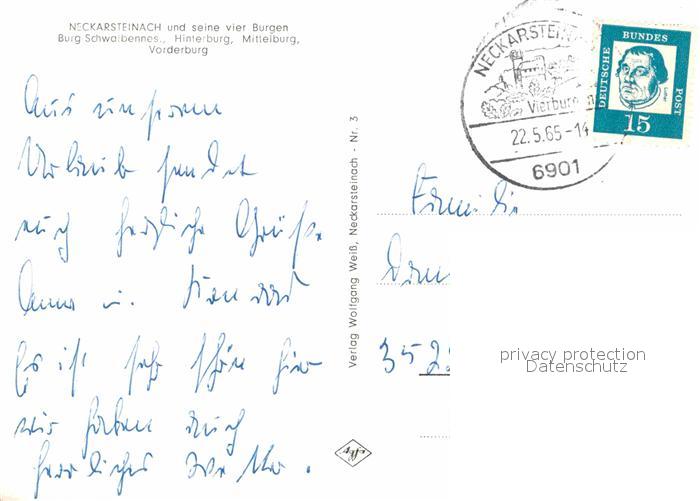 NECKARSTEINACH und seine vier Burgen
Burg Schwalbennes., Hinterburg, Mittelburg,
Vorderburg
Aus unserem
Urlaub sendet
euch herzliche Grüße
Anna u.
Es ist sehr schön hier
wir haben auch
herrliches Wetter.
Verlag Wolfgang Weiß, Neckarsteinach - Nr. 3
NECKARSTEIN
Vierburg
22.5.65-14
6901
DEUTSCHE BUNDES POST
Luther
15
Familie
352
privacy protection
Datenschutz